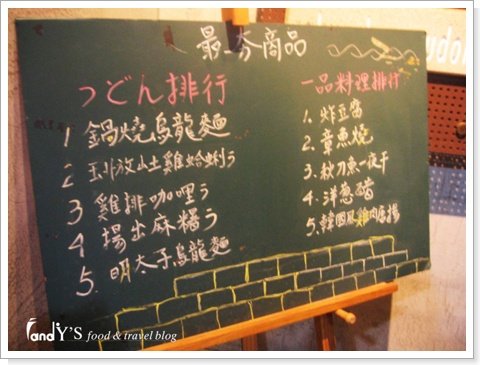 最夯商品
つどん排行
1 鍋燒烏龍麵
2 放山土雞蛤蜊う
3 雞排咖哩う
4 揚出麻糬う
5. 明太子烏龍麵
一品料理排行
1. 炸豆腐
2. 章魚燒
3. 秋刀魚一夜干
4. 洋蔥醋
5. 韓國風雞肉唐揚
FandY'S food & travel blog